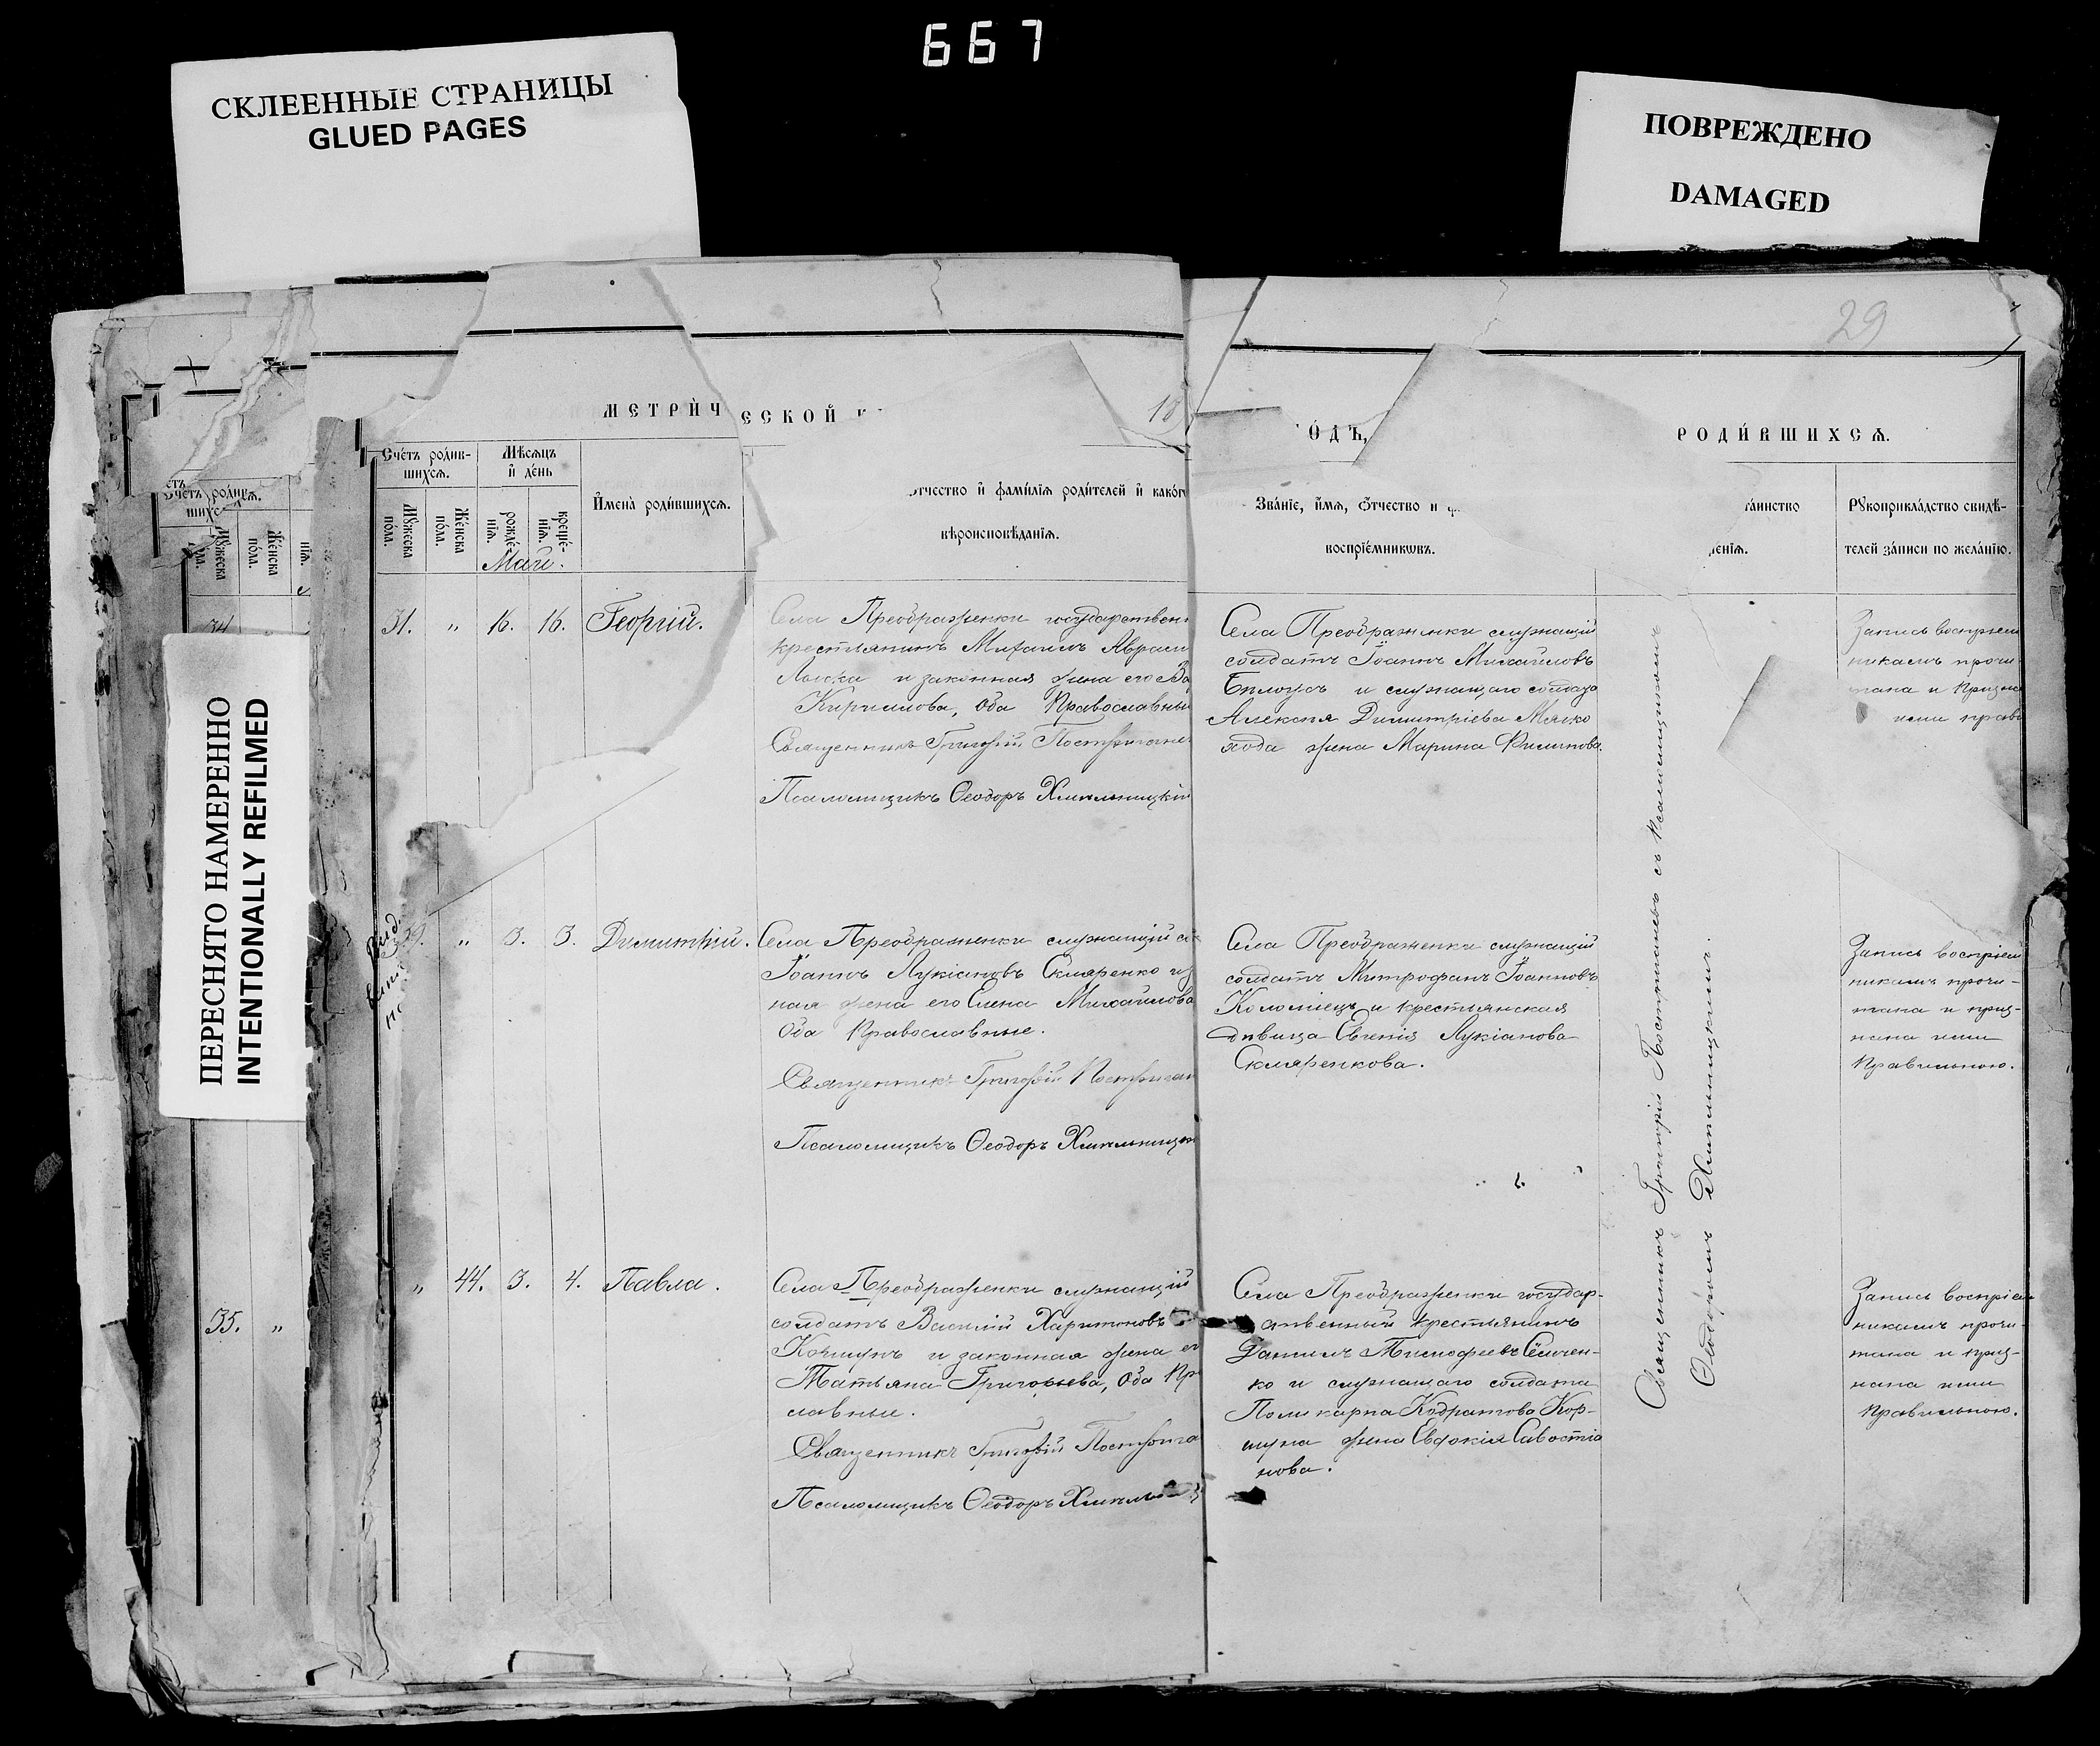 667
СКЛЕЕННЫЕ СТРАНИЦЫ
GLUED PAGES
ПОВРЕЖДЕНО
DAMAGED
ПЕРЕСНЯТО НАМЕРЕННО
INTENTIONALLY REFILMED
29
МЕТРИЧЕСКОЙ
18
ОДЪ,
РОДИВШИХСЯ.
Счетъ родив-
шихся.
Мужеска
пола.
Женска
пола.
Мѣсяцъ
и день
рожде-
нія.
креще-
нія.
Имена родившихся.
отчество и фамилія родителей и
вѣроисповѣданія.
Званіе, имя, отчество и
воспріемниковъ.
таинство
Рукоприкладство свидѣ-
телей записи по желанію.
Маи.
31. „ 16. 16. Георгій.
Села Преображенки
крестьянинъ Михаилъ
и законная жена его
Кирилова, Оба Православны
Священникъ Григорій
Псаломщикъ Ѳеодоръ Хмельницкій
Села Преображенки служащій
солдатъ Іоаннъ Михайловъ
Бѣлоусъ и служащаго солдата
Алексѣя Димитріева Мяско
жена Марина Филипова.
Запись воспріем
никамъ прочи
тана и призна
ими прав
„ 3. 3. Димитрій.
Села Преображенки служащій
Іоаннъ Лукіановъ Скляренко и
ная жена его Елена Михайлова
Оба Православные.
Священникъ Григорій
Псаломщикъ Ѳеодоръ
Села Преображенки служащій
солдатъ Митрофанъ Іоанновъ
Коломіецъ и крестьянская
дѣвица Евгенія Лукіанова
Скляренкова.
Запись воспріем
никамъ прочи-
тана и приз-
нана ими
Правильною.
„ 44. 3. 4. Павла.
Села Преображенки служащій
солдатъ Василій Харитоновъ
Коршунъ и законная жена ег
Татьяна Григорьева, Оба Пр
славные.
Священникъ Григорій
Псаломщикъ Ѳеодоръ
Села Преображенки государ-
ственный крестьянинъ
Даніилъ Тимофеевъ Семчен-
ко и служащаго солдата
Поликарпа Кодратова Кор-
шуна жена Евдокія Савостіа
нова.
Запись воспріем
никамъ прочи-
тана и приз-
нана ими
Правильною.
Священникъ Григорій
Ѳеодоромъ Хмельницкимъ.
35. „